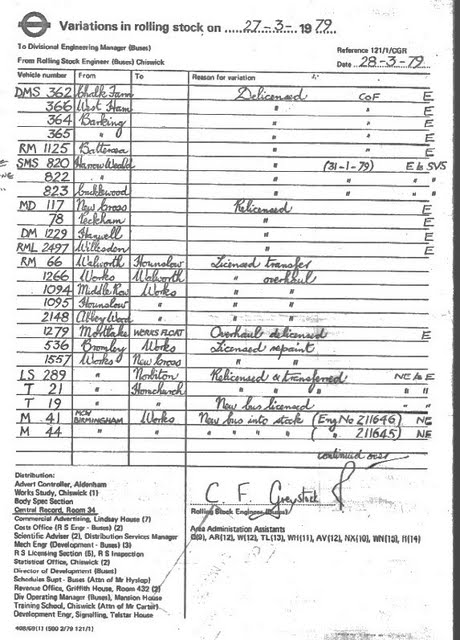 Variations in rolling stock on 27-3-1979
To Divisional Engineering Manager (Buses)
Reference 121/1/CGR
From Rolling Stock Engineer (Buses) Chiswick
Date 28-3-79
Vehicle number From To Reason for variation
DMS 362 Chalk Farm Delicensed COF E
366 West Ham " " E
364 Barking " " E
365 " " " E
RM 1125 Battersea " " E
SMS 820 Harrow Weald " (31-1-79) E to SVS
822 " " " " "
823 Cricklewood " " " "
MD 117 New Cross Relicensed E
78 Peckham " E
DM 1229 Hanwell " E
RML 2497 Willesden " E
RM 66 Walworth Hounslow Licensed transfer
1266 Works Walworth " overhaul
1094 Middle Row Works " "
1095 Hounslow " " "
2148 Abbey Wood " " "
1279 Mortlake WORKS FLOAT Overhaul delicensed E
536 Bromley Works Licensed repaint
1557 Works New Cross " "
LS 289 " Norbiton Relicensed & transferred NE to E
T 21 " Hornchurch " " " "
T 19 " " New bus licensed " "
M 41 MCW BIRMINGHAM Works New bus into stock (Eng No Z11646) NE
M 44 " " " " " " ( " Z11645) NE
continued over
Distribution:
Advert Controller, Aldenham
Works Study, Chiswick (1)
Body Spec Section
Central Record, Room 34
Commercial Advertising, Lindsey House (7)
Costs Office (R S Engr - Buses) (2)
Scientific Adviser (2), Distribution Services Manager
Mech Engr (Development - Buses) (3)
R S Licensing Section (5), R S Inspection
Statistical Office, Chiswick (2)
Director of Development (Buses)
Schedules Supt - Buses (Attn of Mr Hyslop)
Revenue Office, Griffith House, Room 432 (2)
Div Operating Manager (Buses), Mansion House
Training School, Chiswick (Attn of Mr Carter)
Development Engr, Signalling, Telstar House
C. F. Greystock
Rolling Stock Engineer (Buses)
Area Administation Assistants
AR(12), W(12), TL(13), WH(11), AV(12), NX(10), WN(15), H(14)